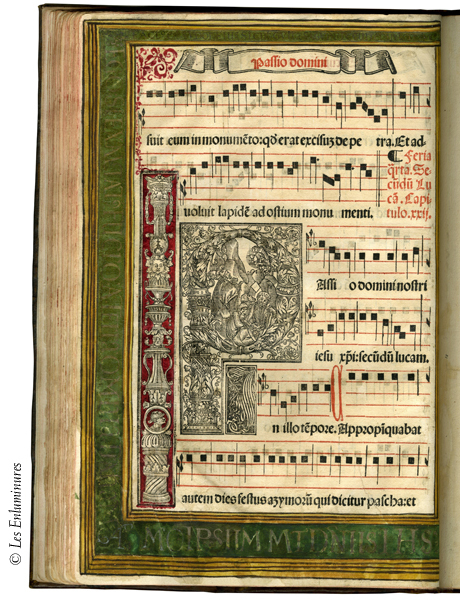 Passio domini
suit eum in monumẽto: qđ erat excisuʒ de pe tra. Et ad
¶ Feria
q̃rta. Se
cũdũ Lu
cã. Capi
tulo. xxij.
uoluit lapidẽ ad ostium monu menti.
P Assi o domini nostri
iesu xp̃i: secũdũ lucam.
I n illo tẽpore. Appropĩquabat
autem dies festus azymorũ qui dicitur pascha: et
© Les Enluminures